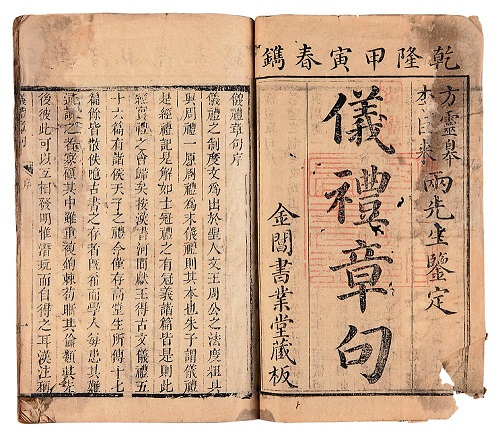 乾隆甲寅春鐫
方靈皋
李巨來
兩先生鑒定
儀禮章句
金閶書業堂藏板
儀禮章句序
儀禮之制度文為出於聖人文王周公之法度粗具
與周禮一原周禮為末儀禮則其本也朱子謂儀禮
是經禮記是解如士冠禮之有冠義諸篇皆是則此
經實禮之會歸矣按漢書河間獻王得古文儀禮五
十六篇有諸侯天子之禮今僅存高堂生所傳十七
篇餘皆散佚噫古書之存者既希而學人每患其難
之者寡顧其中雖重複棘苟聯其倫類其先
後彼此可以互相發明惟潛玩而自得之耳漢注稱
序